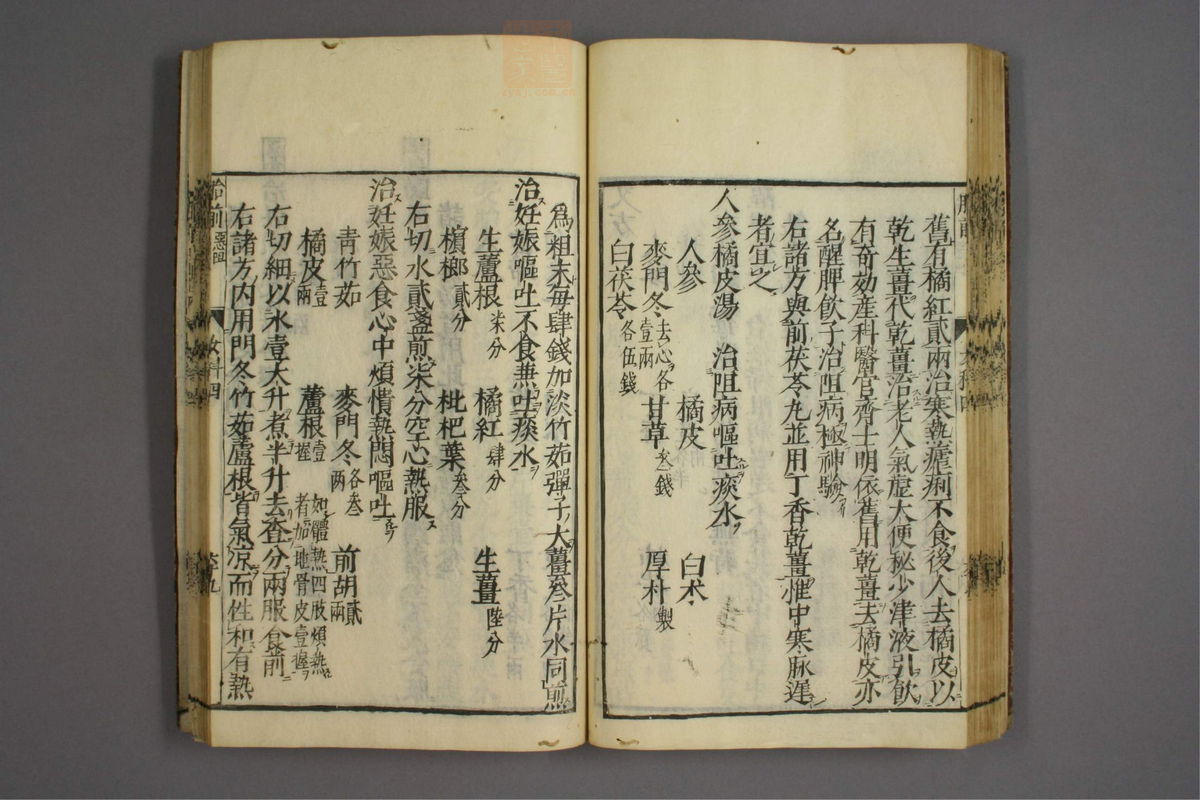 舊有橘紅貳兩治寒熱瘧痢不食後人去橘皮以
乾生薑代乾薑治老人氣虛大便秘少津液引飲
有奇効產科醫官齊士明依舊用乾薑去橘皮亦
名醒脾飲子治阻病極神驗
右諸方與前茯苓丸並用丁香乾薑惟中寒脉遲
者宜之
人參橘皮湯　治阻病嘔吐痰水
人參　橘皮　白术
麥門冬去心各壹兩　甘草叁錢　厚朴製
白茯苓各伍錢
爲粗末每肆錢加淡竹茹彈子大薑參片水同煎
治妊娠嘔吐不食兼吐痰水
生蘆根柒分　橘紅肆分　生薑陸分
檳榔貳分　枇杷葉叁分
右切水貳盞煎柒分空心熱服
治妊娠惡食心中煩憒熱悶嘔吐
青竹茹　麥門冬各叁兩　前胡貳兩
橘皮壹兩　蘆根壹握　如體熱四肢煩熱者加地骨皮壹握
右切細以水壹大升煮半升去查分兩服食前
右諸方内用門冬竹茹蘆根皆氣凉而性和有熱
胎前惡阻　女科四
cysj.com.cn